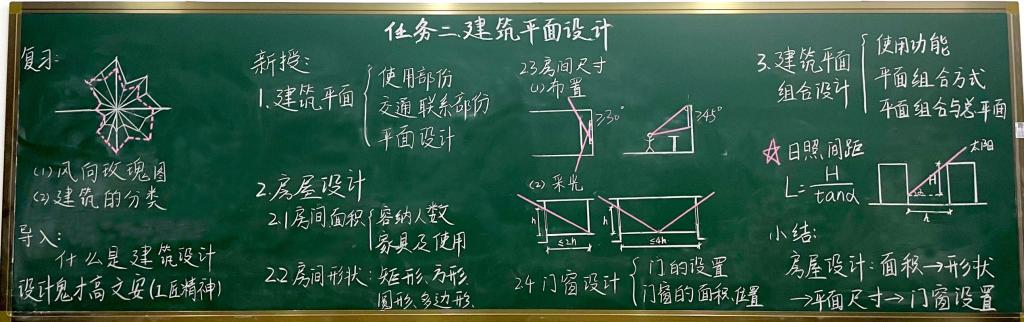 任务二、建筑平面设计
复习:
(1)风向玫瑰图
(2)建筑的分类
导入:
什么是建筑设计
设计鬼才高文安(工匠精神)
新授:
1.建筑平面
使用部份
交通联系部份
平面设计
2.房屋设计
2.1房间面积
容纳人数
家具及使用
2.2房间形状:矩形、方形
圆形、多边形、
2.3房间尺寸
(1)布置
≥30°
≥45°
(2)采光
h
≤2h
h
≤4h
2.4门窗设计
门的设置
门窗的面积、位置
3.建筑平面
组合设计
使用功能
平面组合方式
平面组合与总平面
☆日照间距
L=H/tanα
太阳
H
小结:
房屋设计:面积→形状
→平面尺寸→门窗设置